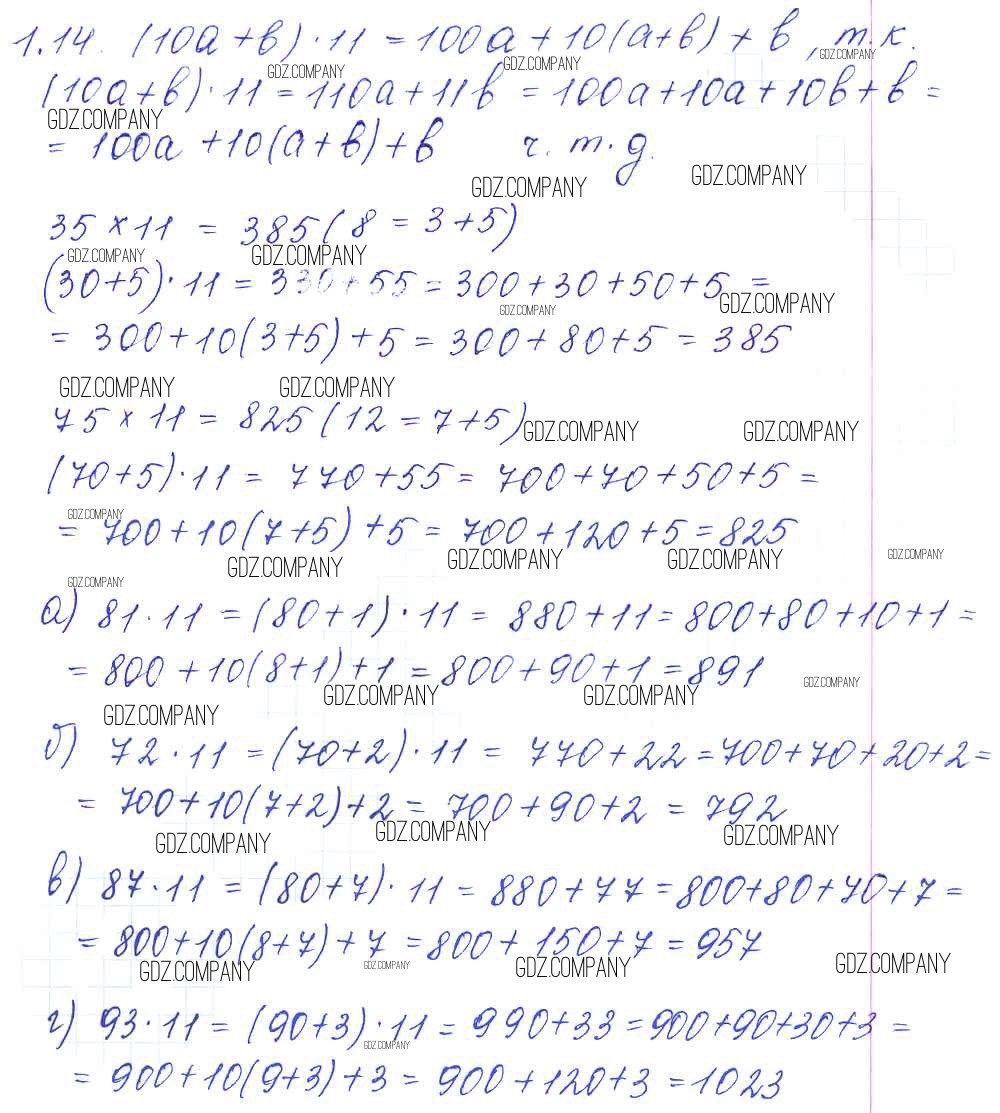 1.14. (10a + b) · 11 = 100a + 10(a+b) + b, т.к.
(10a + b) · 11 = 110a + 11b = 100a + 10a + 10b + b =
= 100a + 10(a + b) + b ч. т. д.
35 × 11 = 385 (8 = 3 + 5)
(30+5) · 11 = 330 + 55 = 300 + 30 + 50 + 5 =
= 300 + 10(3+5) + 5 = 300 + 80 + 5 = 385
75 × 11 = 825 (12 = 7 + 5)
(70 + 5) · 11 = 770 + 55 = 700 + 70 + 50 + 5 =
= 700 + 10(7+5) + 5 = 700 + 120 + 5 = 825
а) 81 · 11 = (80 + 1) · 11 = 880 + 11 = 800 + 80 + 10 + 1 =
= 800 + 10(8+1) + 1 = 800 + 90 + 1 = 891
б) 72 · 11 = (70+2) · 11 = 770 + 22 = 700 + 70 + 20 + 2 =
= 700 + 10(7+2) + 2 = 700 + 90 + 2 = 792
в) 87 · 11 = (80+7) · 11 = 880 + 77 = 800 + 80 + 70 + 7 =
= 800 + 10(8+7) + 7 = 800 + 150 + 7 = 957
г) 93 · 11 = (90+3) · 11 = 990 + 33 = 900 + 90 + 30 + 3 =
= 900 + 10(9+3) + 3 = 900 + 120 + 3 = 1023
GDZ.COMPANY